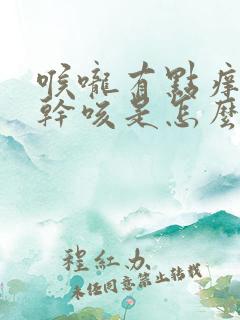 喉嚨有點痒
幹咳是怎麼
程紅办
未经同意禁止转载